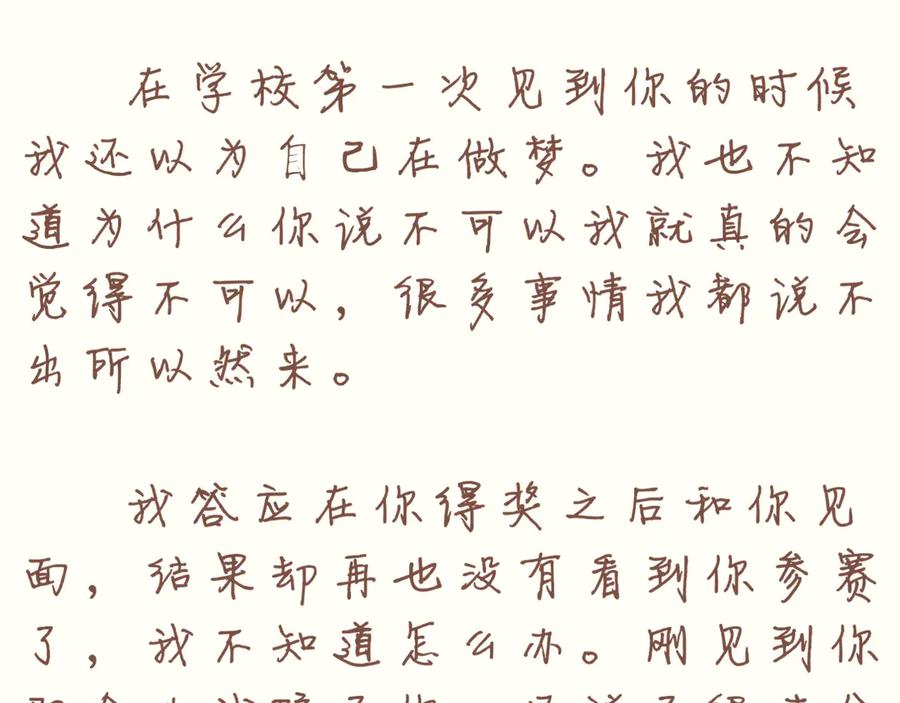 在学校第一次见到你的时候
我还以为自己在做梦。我也不知
道为什么你说不可以我就真的会
觉得不可以，很多事情我都说不
出所以然来。
我答应在你得奖之后和你见
面，结果却再也没有看到你参赛
了，我不知道怎么办。刚见到你